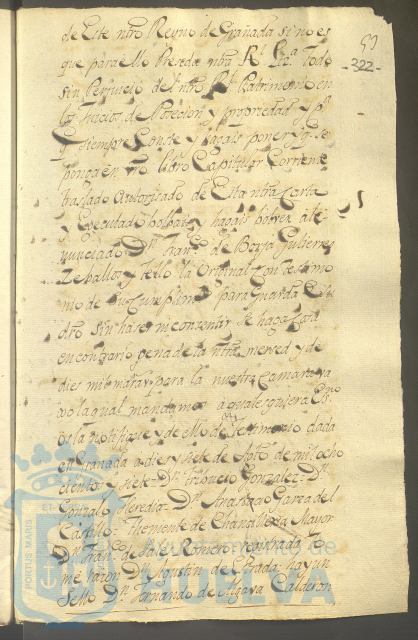 de Este nro Reyno de Granada si no es
que para ello Preceda nra Rl. Liza. todo
sin Perjuicio del nro Rl. Patrimonio en
los Juicios de Posecion, y propiedad y pa.
q siempre Conste y hagais poner y q se
ponga en vro libro Capitular Corriente
traslado autorizado de Esta nra Carta
y Executado bolbais y hagais bolver a el e
nunciado Dn. Franco. de Borja Gutierres
Zeballos y tello la Original Con testimo
nio de su Cumplimto. para Guarda de su
dro sin hacer ni consentir se haga Cosa
en contrario pena de la nra merced y de
dies mil marav. para la nuestra Camara va
xo la qual mandamos a qualesquiera Esno.
os la notifique y de ello de testimonio dada
en Granada a dies y siete de Septo. de mil ocho
cientos y siete Dn. Tiburcio Gonzalez Dn.
Gonzalo Heredia Dn. Anastacio Garcia del
Castillo Theniente de Chanciller Mayor
Dn. Franco. de Sales Romero registrada To
me razon Dn. Agustin de Estrada hay un
Sello Dn. Fernando de Algava Calderon
59
-322-
PORTUS MARIS ET
Ayuntamiento de
HUELVA